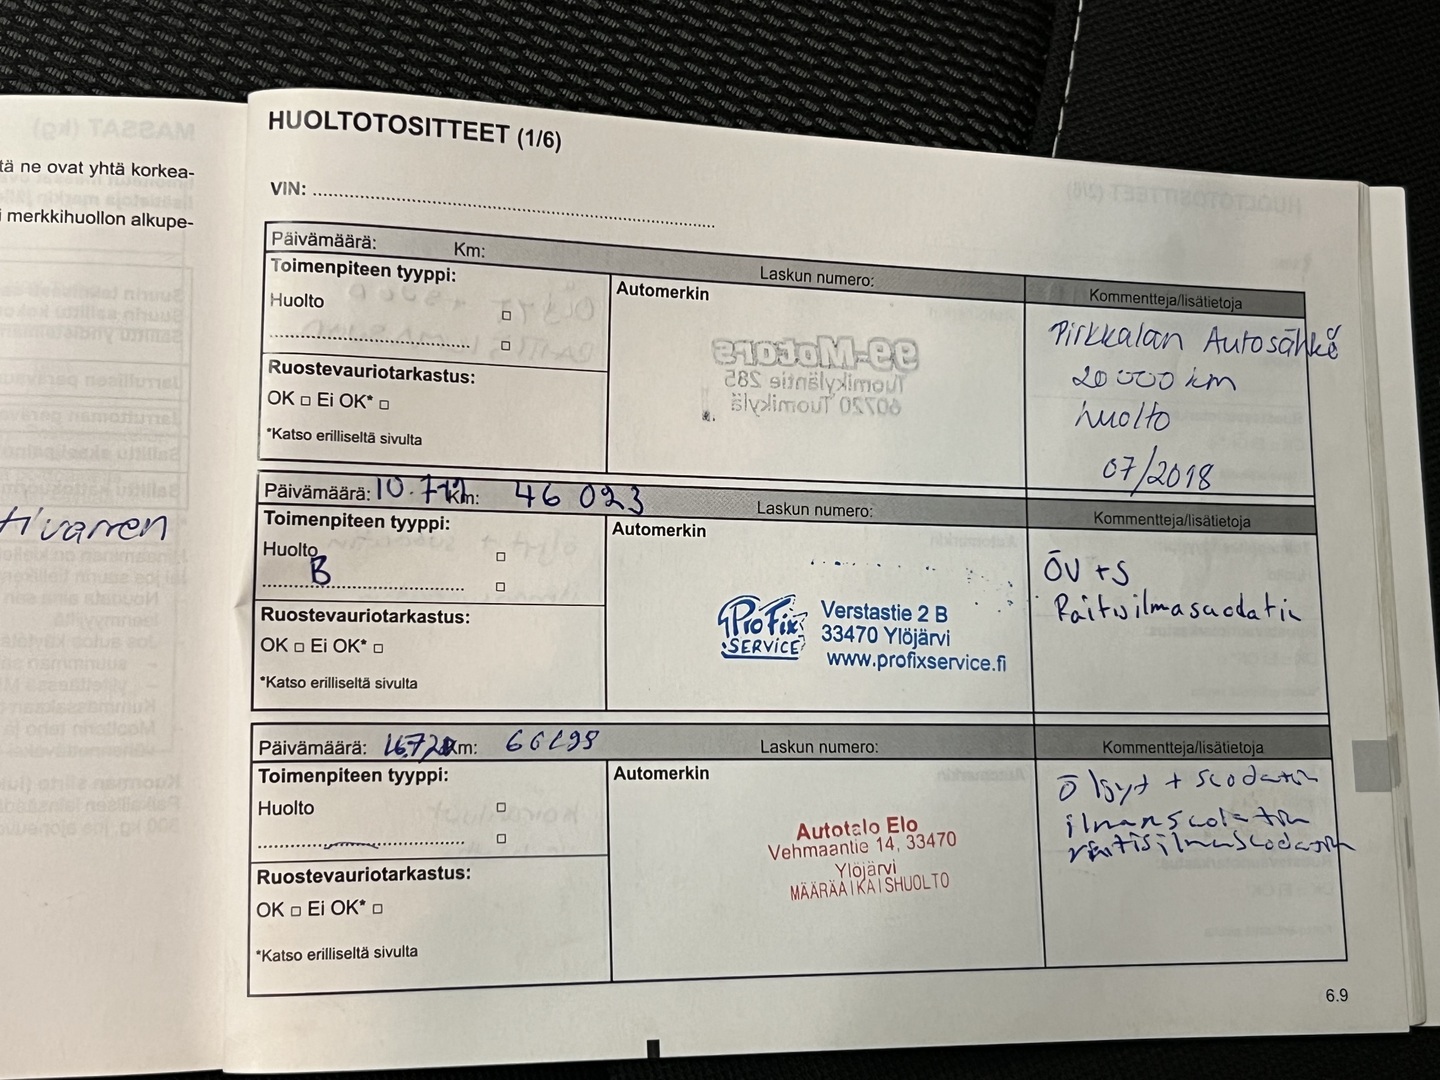 tä ne ovat yhtä korkea-
i merkkihuollon alkupe-
HUOLTOTOSITTEET (1/6)
VIN:
Päivämäärä: Km: Laskun numero:
Toimenpiteen tyyppi:
Huolto
Ruostevauriotarkastus:
OK □ Ei OK* □
*Katso erilliseltä sivulta
Automerkin
Kommentteja/lisätietoja
Pirkkalan Autosähkö
20 000 km
huolto
07/2018
Päivämäärä: Km: 46 023 Laskun numero:
Toimenpiteen tyyppi:
Huolto
B
Ruostevauriotarkastus:
OK □ Ei OK* □
*Katso erilliseltä sivulta
Automerkin
ProFix SERVICE
Verstastie 2 B
33470 Ylöjärvi
www.profixservice.fi
Kommentteja/lisätietoja
ÖV +S
Raitisilmasuodatin
Päivämäärä: Km: Laskun numero:
Toimenpiteen tyyppi:
Huolto
Ruostevauriotarkastus:
OK □ Ei OK* □
*Katso erilliseltä sivulta
Automerkin
Autotalo Elo
Vehmaantie 14, 33470
Ylöjärvi
MÄÄRÄAIKAISHUOLTO
Kommentteja/lisätietoja
öljyt + suodatin
ilmansuodatin
raitisilmasuodatin
6.9